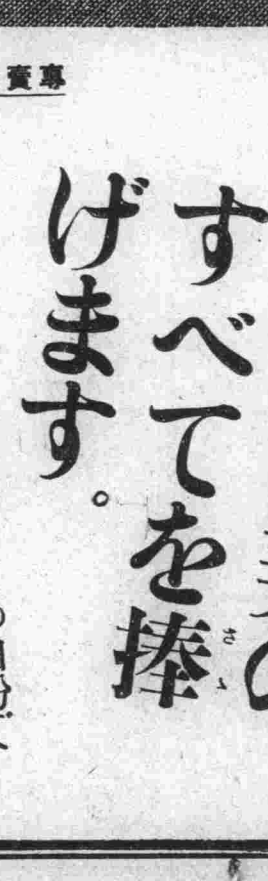 専賣
すべてを捧
げます。